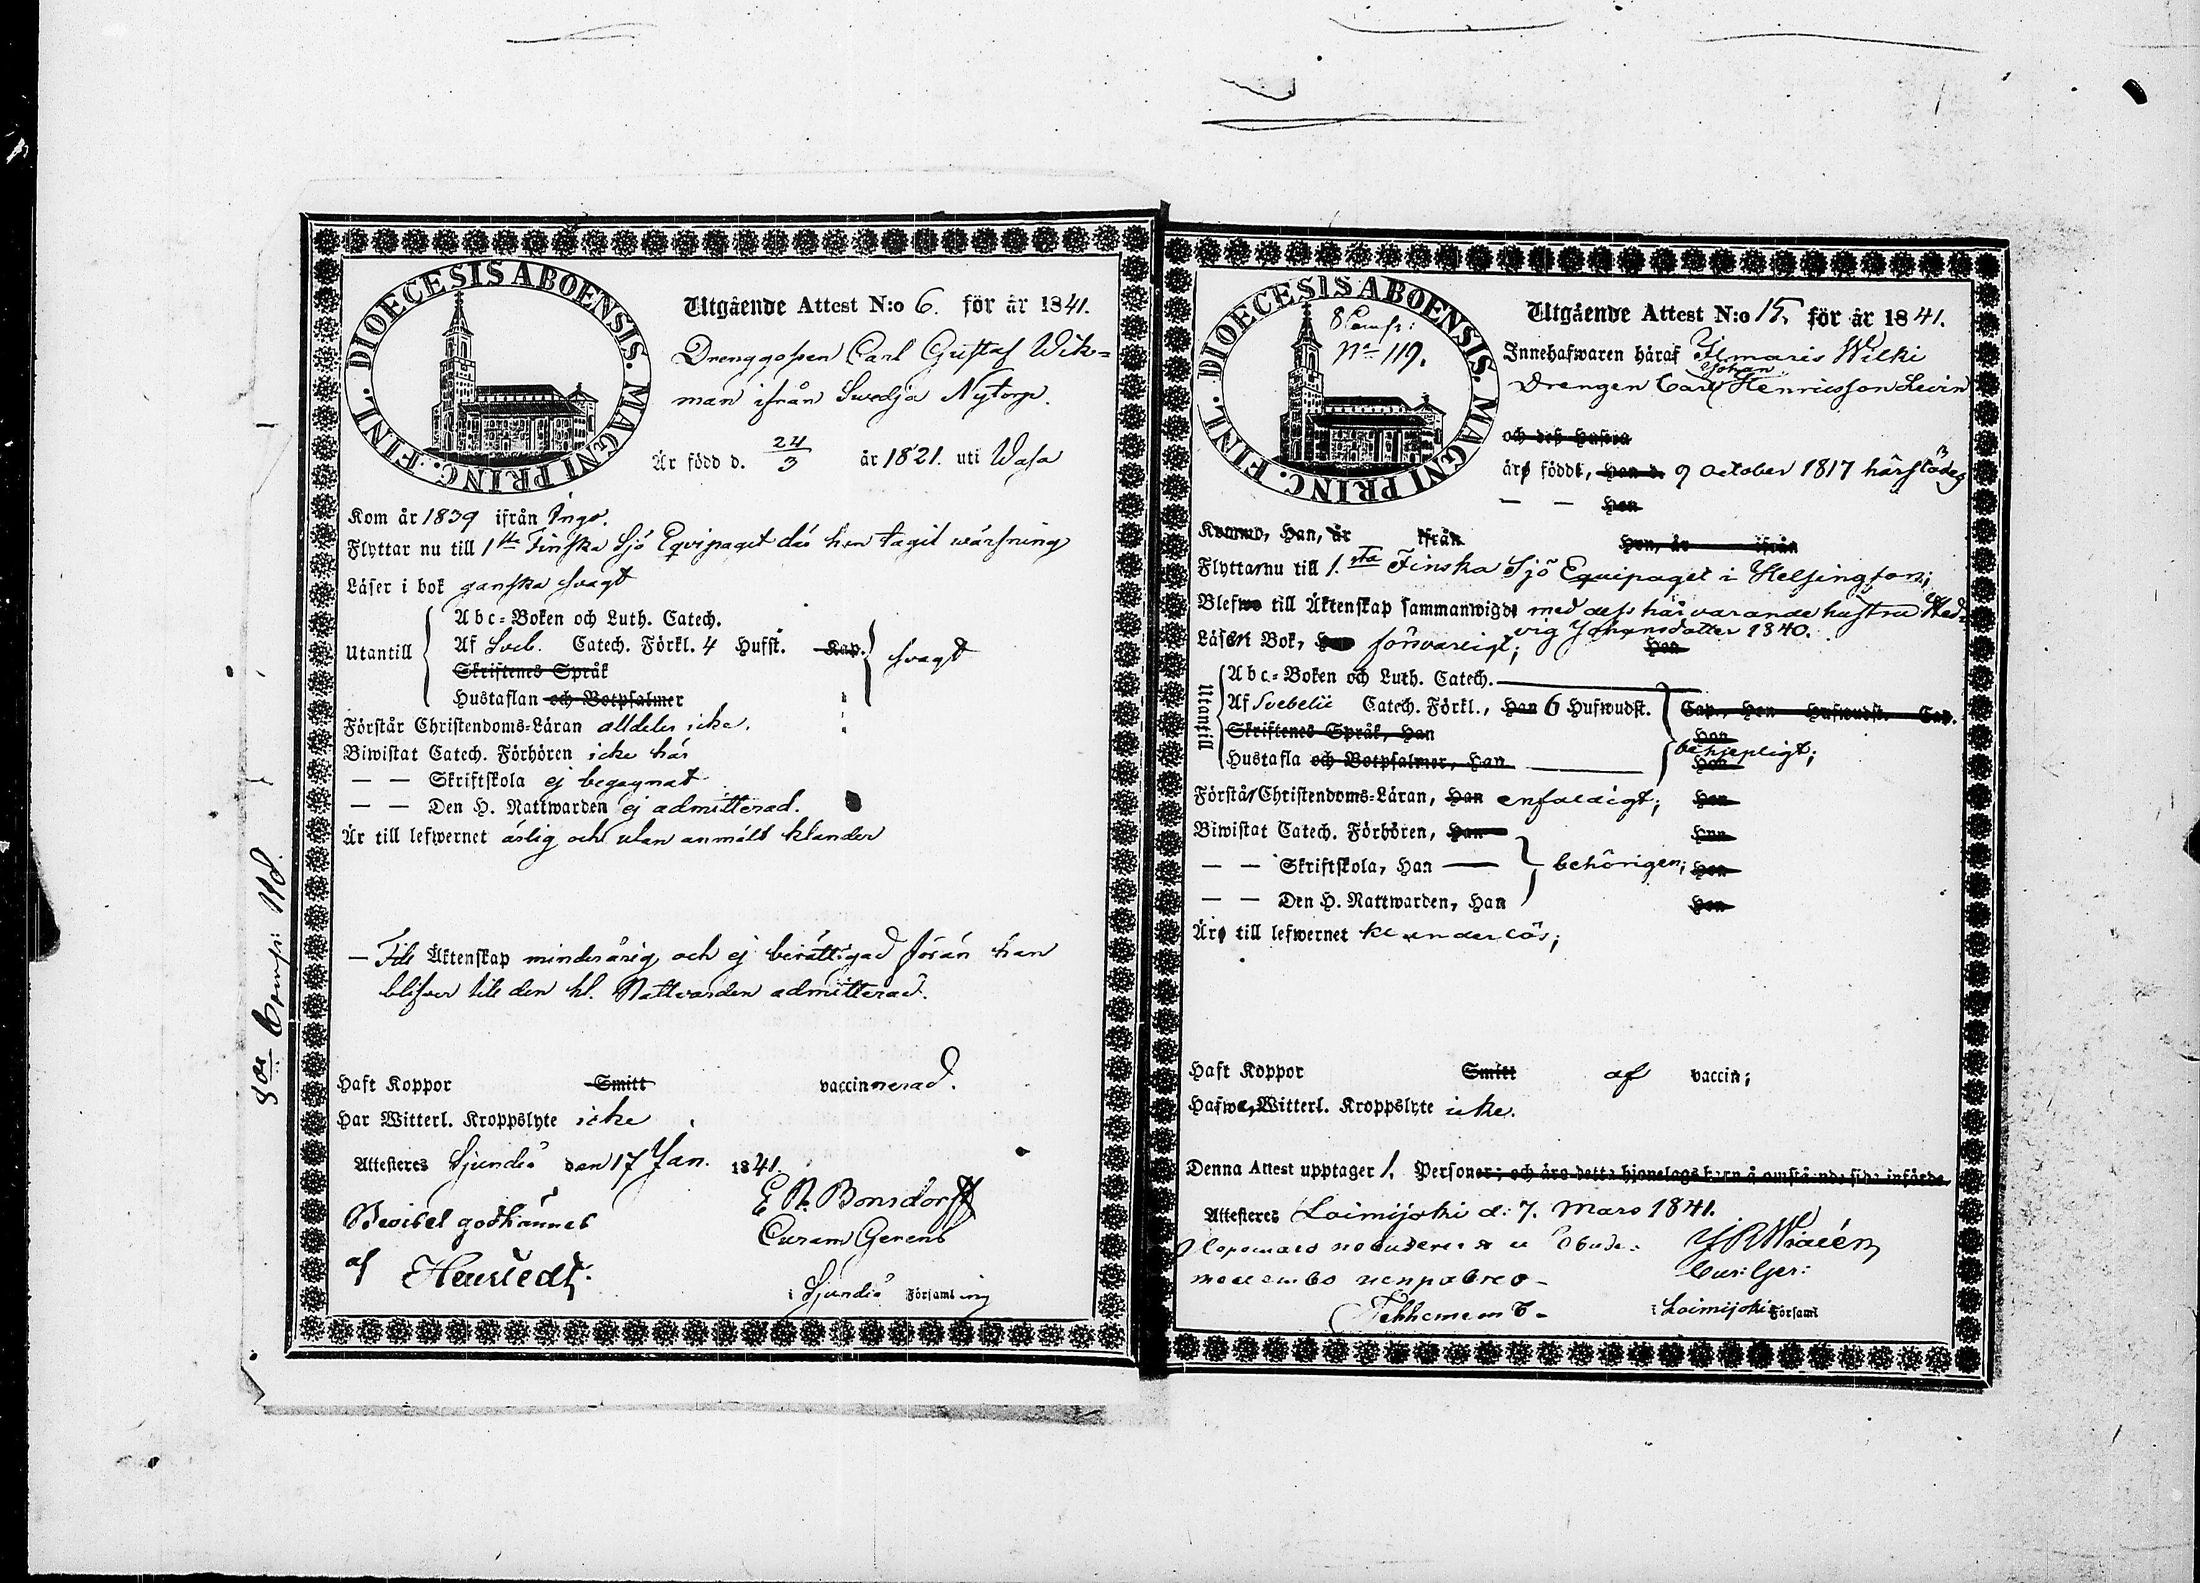 DIOECESIS ABOENSIS. MAGNI PRINC. FINL.
Utgående Attest N:o 6. för år 1841.
Drenggossen Carl Gustaf Wik=
man ifrån Swedja Nytorp.
Är född d. 24/3 år 1821. uti Wasa
Kom år 1839 ifrån Ingo.
Flyttar nu till 1sta Finska Sjö Equipaget där han tagit wärfning
Läser i bok ganska svagt
Utantill
Abc=Boken och Luth. Catech.
Af Sveb. Catech. Förkl. 4 Hufst. Kap. svagt
Skriftenes Språk
Hustaflan och Botpsalmer
Förstår Christendoms=Läran alldeles icke.
Biwistat Catech. Förhören icke här
— — Skriftskola ej begagnat
— — Den H. Nattwarden ej admitterad.
Är till lefwernet ärlig och utan anmält klander
— Till Äktenskap minderårig och ej berättigad förän han
blifver till den hl. Nattvarden admitterad.
Haft Koppor Smitt vaccinnerad.
Har Witterl. Kroppslyte icke
Attesteres Sjundeå den 17 Jan. 1841.
E. N. Bonsdorff
Beviset godkännes
Curam Gerens
af
i Sjundeå Församling
8de Comp: 118.
DIOECESIS ABOENSIS. MAGNI PRINC. FINL.
8 Comp:
No 119.
Utgående Attest N:o 15. för år 1841.
Innehafwaren häraf Ilmaris Wilki
Johan
Drengen Carl Henricsson Levin
och deß Hustru
äro födde, Han d. 9 October 1817 härstädes
— — Hon
Kommo, Han, år ifrån Hon, år ifrån
Flytta nu till 1.sta Finska Sjö Equipaget i Helsingfors;
Blefwo till Äktenskap sammanwigde med dess härvarande hustru Hed-
vig Johansdotter 1840.
Läser i Bok, Han försvarligt; Hon
Utantill
Abc=Boken och Luth. Catech.
Af Svebelii Catech. Förkl., Han 6 Hufwudst. Cap., Hon Hufwudst. Cap.
Skriftenes Språk, Han Hon
behjelpligt;
Hustafla och Botpsalmer, Han Hon
Förstår Christendoms=Läran, Han enfaldigt; Hon
Biwistat Catech. Förhören, Han Hon
— — Skriftskola, Han behörigen; Hon
— — Den H. Nattwarden, Han Hon
Äro till lefwernet klanderlös;
Haft Koppor Smitt af vaccin;
Hafwa Witterl. Kroppslyte icke.
Denna Attest upptager 1. Personer; och äro detta hjonelags barn å omstående sida införde.
Attesteres Loimijoki d: 7. Mars 1841.
Cur: Ger:
i Loimijoki Församl